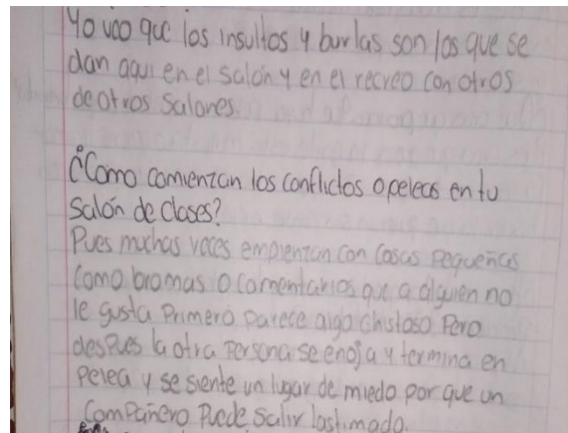 Yo veo que los insultos y burlas son los que se
dan aqui en el salón y en el recreo con otros
de otros salones.
¿Como comienzan los conflictos o peleas en tu
salón de clases?
Pues muchas veces empienzan con cosas pequeñas
como bromas o comentarios que a alguien no
le gusta Primero parece algo chistoso Pero
despues la otra Persona se enoja y termina en
Pelea y se siente un lugar de miedo por que un
Compañero Puede salir lastimado.